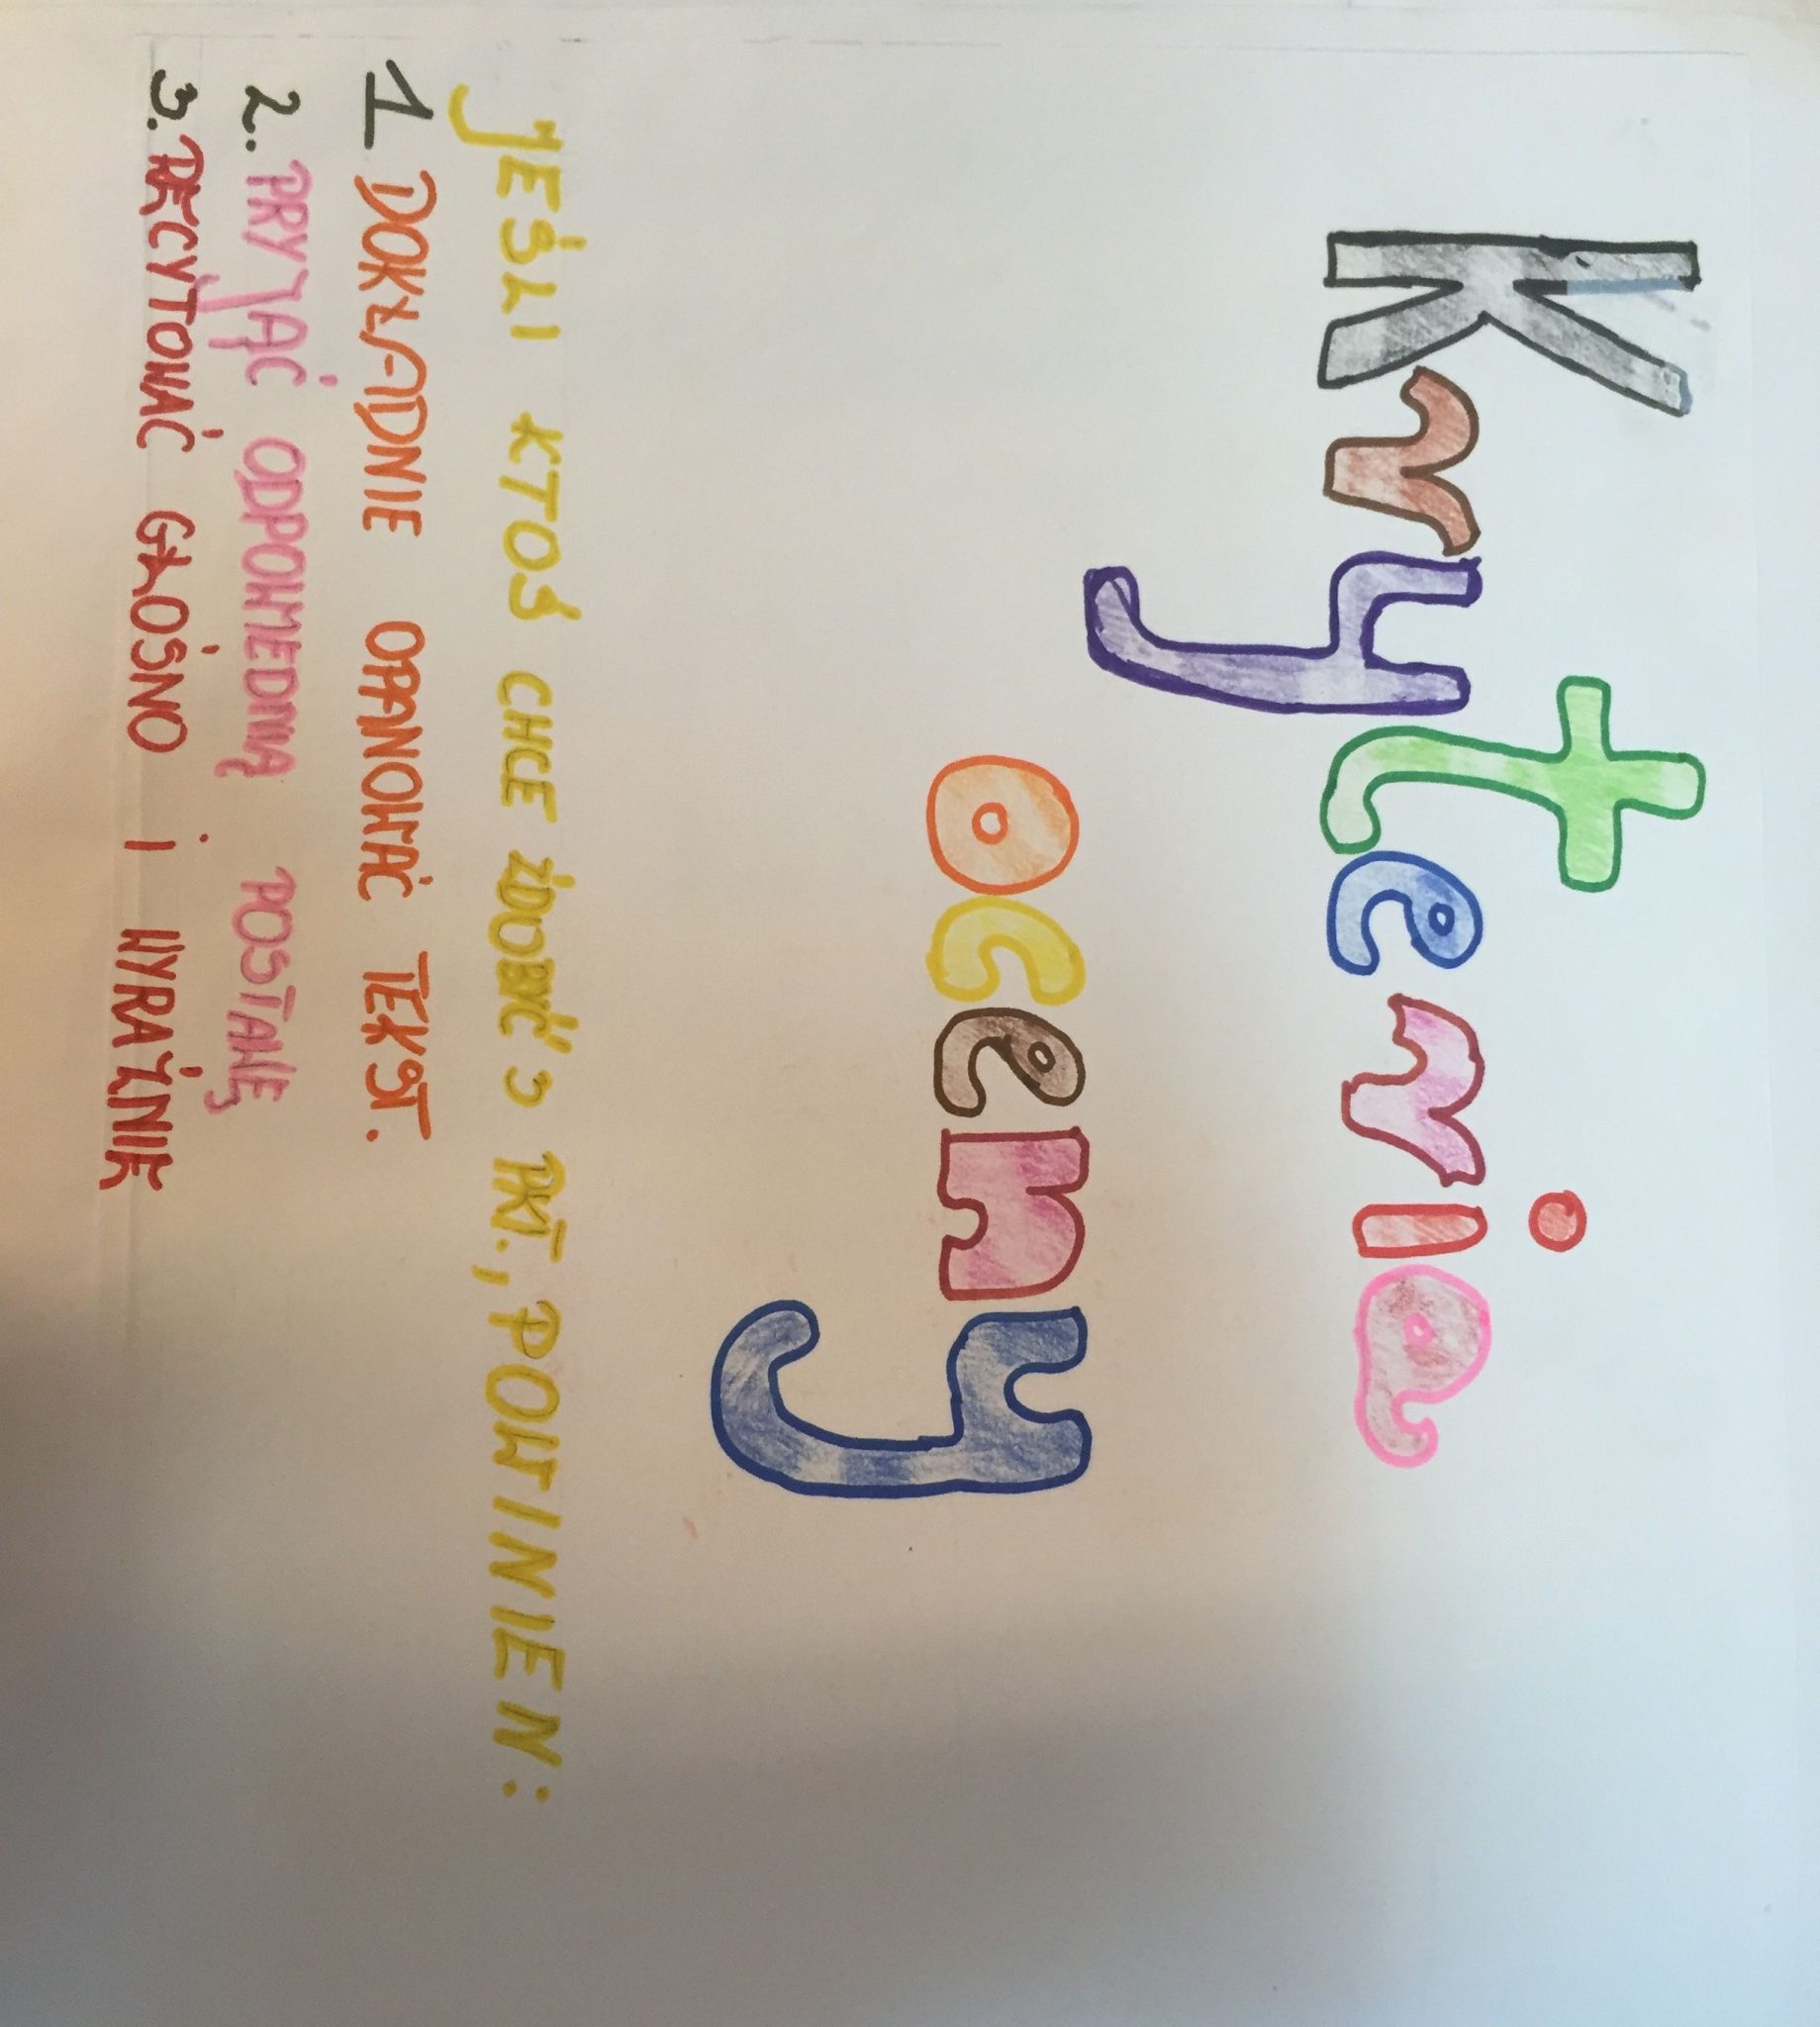 Kryteria
oceny
JEŚLI KTOŚ CHCE ZDOBYĆ 5 PKT., POWINIEN:
1 DOKŁADNIE OPANOWAĆ TEKST.
2. PRYJĄĆ ODPOWIEDNIĄ POSTAWĘ
3. RECYTOWAĆ GŁOŚNO i WYRAŹNIE